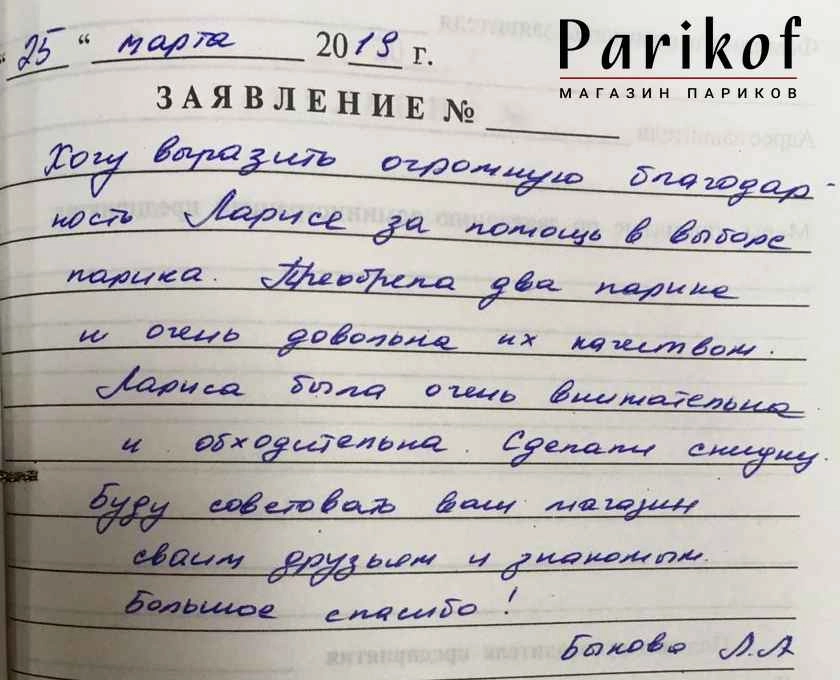 Parikof
МАГАЗИН ПАРИКОВ
"25" марта 2019 г.
ЗАЯВЛЕНИЕ №
Хочу выразить огромную благодар-
ность Ларисе за помощь в выборе
парика. Преобрела два парика
и очень довольна их качеством.
Лариса была очень внимательна
и обходительна. Сделали скидку.
Буду советовать ваш магазин
сваим друзьям и знакомым.
Большое спасибо!
Быкова Л.А